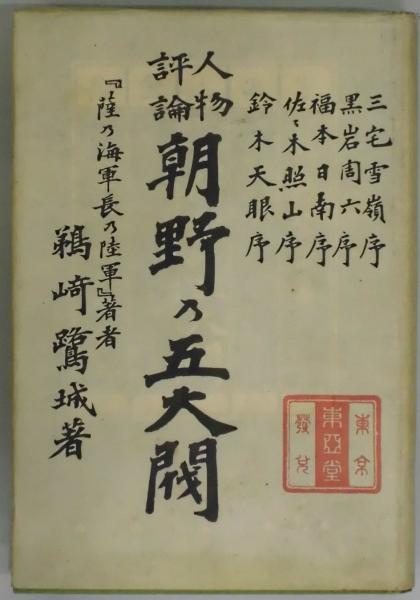 三宅雪嶺序
黒岩周六序
福本日南序
佐々木照山序
鈴木天眼序
人物
評論
朝野の五大閥
『薩の海軍長の陸軍』著者
鵜崎鷺城著
東京
東亞堂
發兌